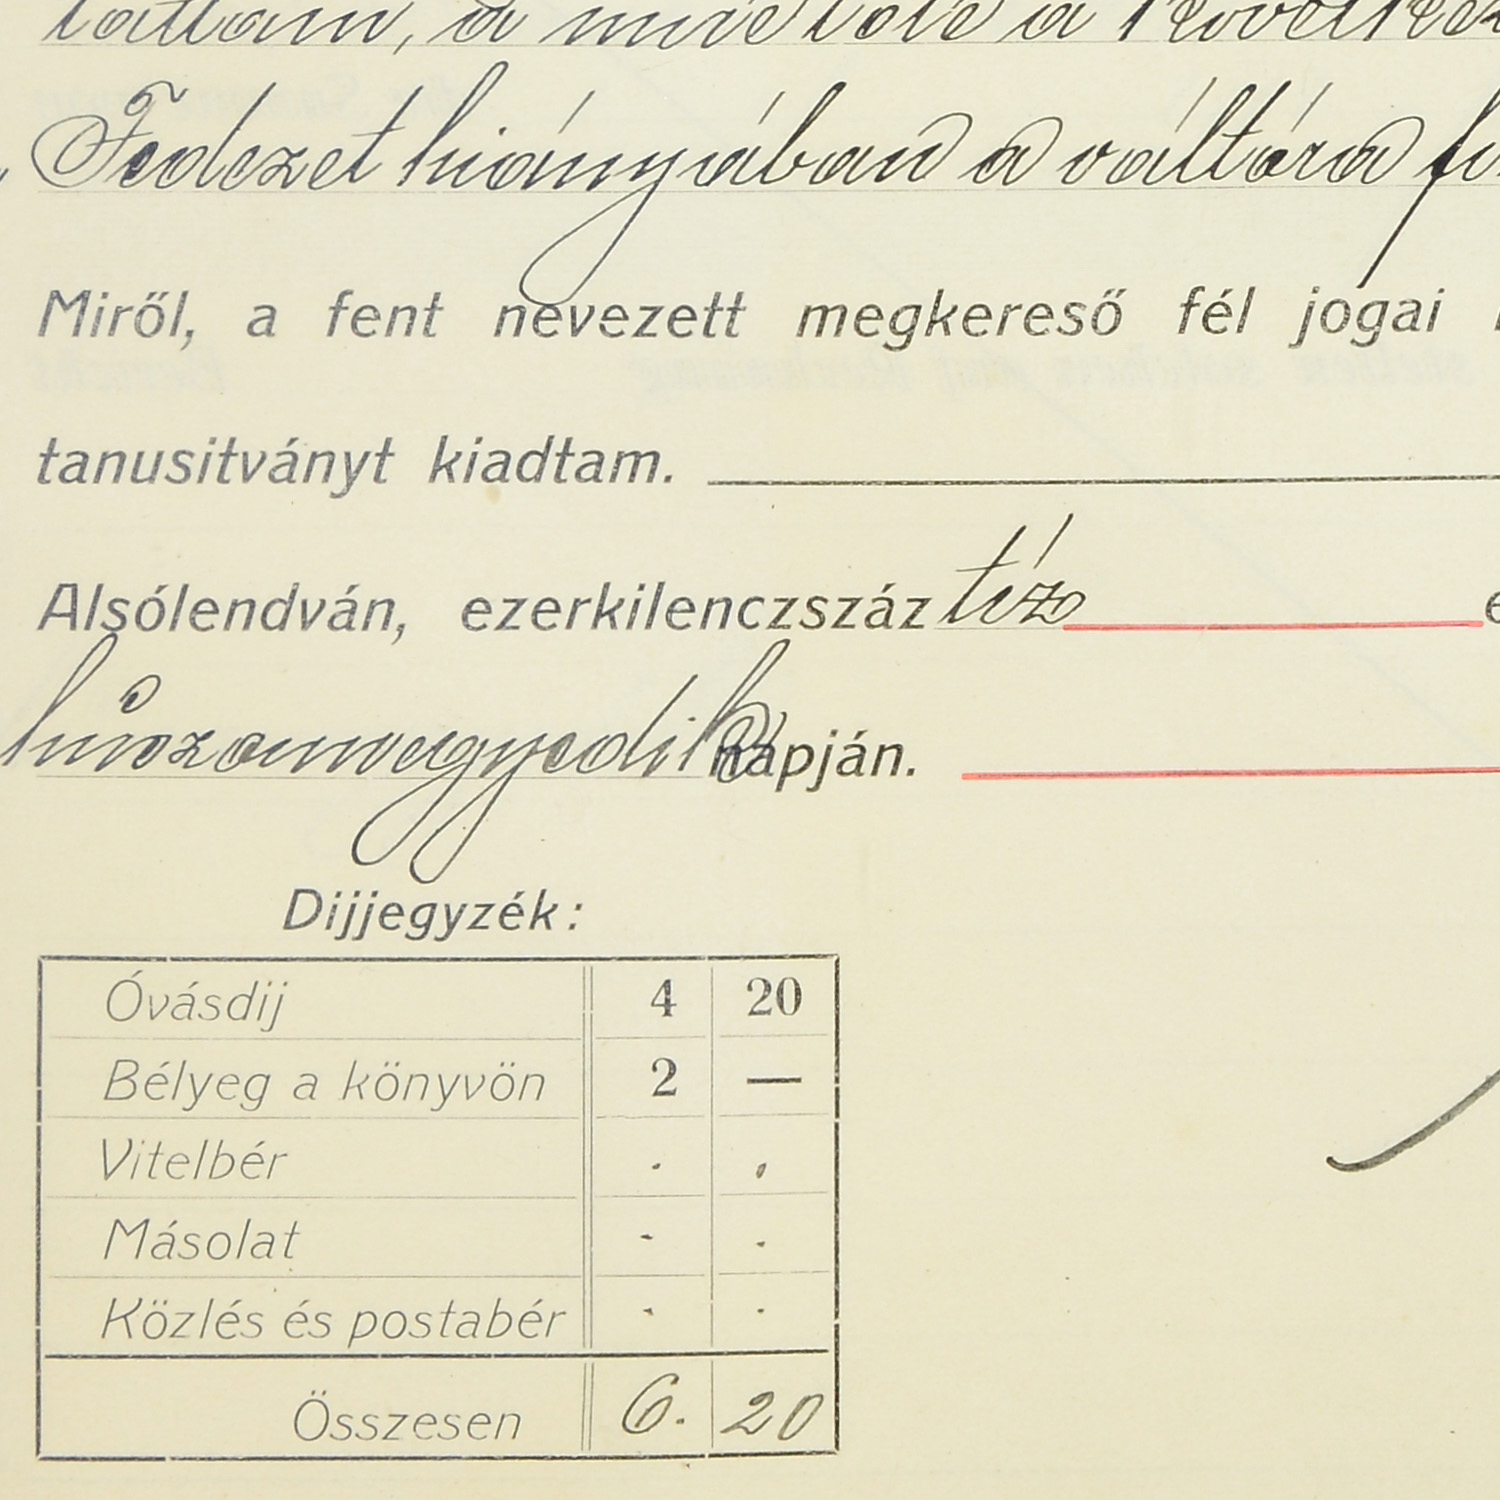 a mire tőle a
Fedezet hiányában a váltóra
Miről, a fent nevezett megkereső fél jogai
tanusitványt kiadtam.
Alsólendván, ezerkilenczszáz tíz
huszonnegyedik napján.
Dijjegyzék:
Óvásdij 4 20
Bélyeg a könyvön 2 —
Vitelbér . .
Másolat - .
Közlés és postabér . .
Összesen 6. 20